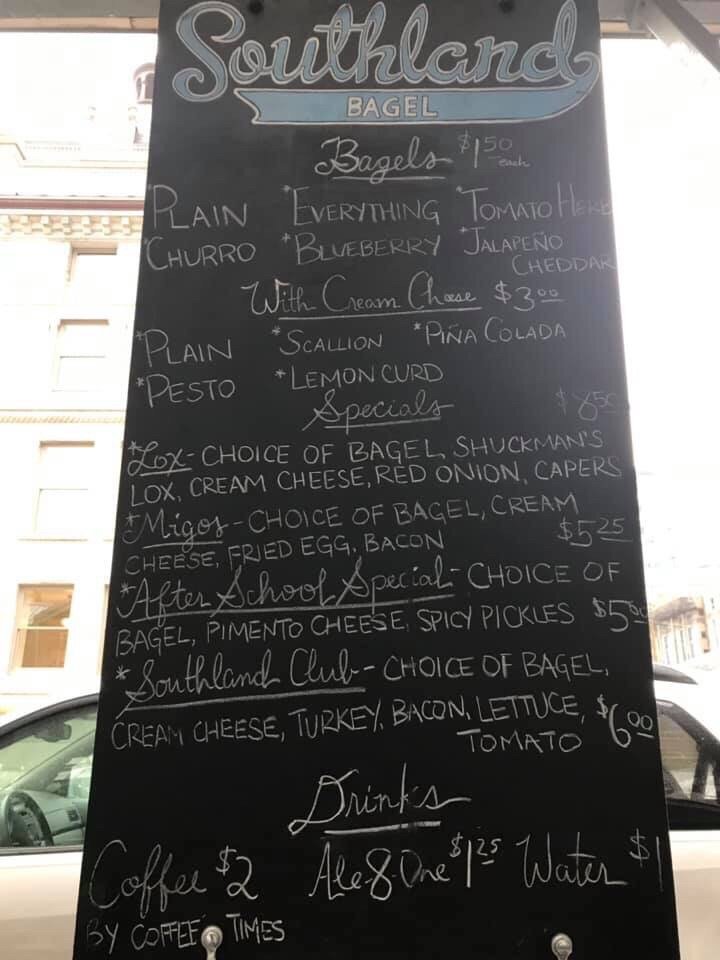 Southland
BAGEL
Bagels $1.50 each
*PLAIN *EVERYTHING *TOMATO HERB
*CHURRO *BLUEBERRY *JALAPEÑO
CHEDDAR
With Cream Cheese $3.00
*PLAIN *SCALLION *PIÑA COLADA
*PESTO *LEMON CURD
Specials
*Lox- CHOICE OF BAGEL, SHUCKMAN'S
LOX, CREAM CHEESE, RED ONION, CAPERS
*Migos - CHOICE OF BAGEL, CREAM
CHEESE, FRIED EGG, BACON $5.25
*After School Special- CHOICE OF
BAGEL, PIMENTO CHEESE, SPICY PICKLES
*Southland Club- CHOICE OF BAGEL,
CREAM CHEESE, TURKEY, BACON, LETTUCE, $6.00
TOMATO
Drinks
Coffee $2 Ale 8 One $1.25 Water $1
BY COFFEE TIMES